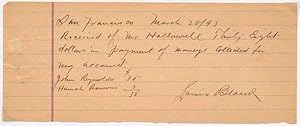 San Francisco March 28/93
Received of Mr Hallowell Thirty Eight
dollars in payment of moneys Collected for
my account.
John Reynolds $35
Hannah 3
38
Louis